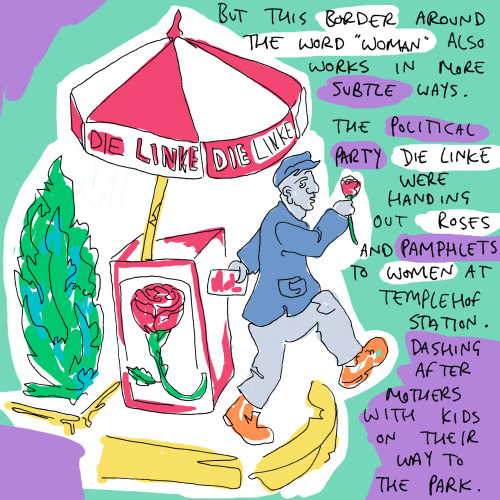 BUT THIS BORDER AROUND
THE WORD "WOMAN" ALSO
WORKS IN MORE
SUBTLE WAYS.
THE POLITICAL
PARTY DIE LINKE
WERE
HANDING
OUT ROSES
AND PAMPHLETS
TO WOMEN AT
TEMPLEHOF
STATION.
DASHING
AFTER
MOTHERS
WITH KIDS
ON THEIR
WAY TO
THE PARK.
DIE LINKE DIE LINKE